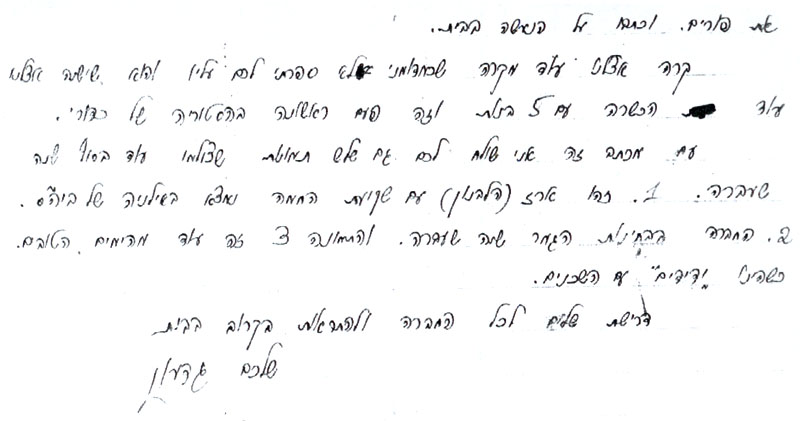 את פורים. וכתבו על הנעשה בבית.
קרה אצלנו עוד מקרה שכמדומני לא ספרתי לכם עליו והוא שישנה אצלנו
עוד הכשרה עם 5 בנות וזה פעם ראשונה בהסטוריה של כדורי.
עם מכתב זה אני שולח לכם גם שלש תמונות שצולמו עוד בסוף שנה
שעברה. 1. זהו ארז (הלבנון) עם שקיעת החמה נמצא בשילניה של ביה"ס.
2. החברה בבחינות הגמר שנה שעברה. והתמונה 3 זה עוד מהימים הטובים.
כשהיינו "ידידים" עם השכנים.
דרישת שלום לכל החברה ולהתראות בקרוב בבית
שלכם גדעון